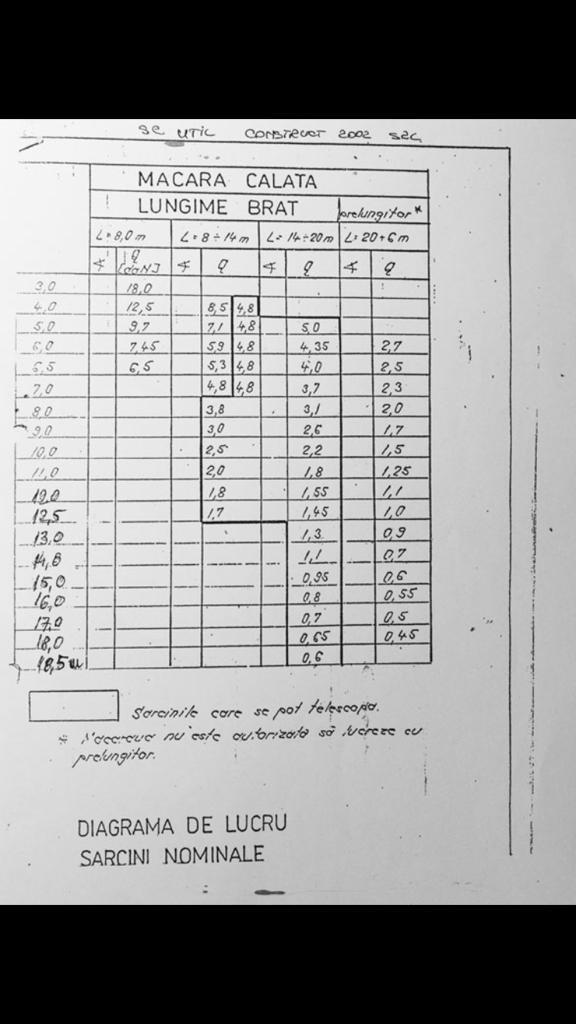 SC UTIL CONSTRUCT 2002 SRL
MACARA CALATA
LUNGIME BRAT prelungitor*
L=8,0m L=8÷14m L=14÷20m L=20+6m
∢ Q [daN] ∢ Q ∢ Q ∢ Q
3,0 18,0
4,0 12,5 8,5 4,8
5,0 9,7 7,1 4,8 5,0
6,0 7,45 5,9 4,8 4,35 2,7
6,5 6,5 5,3 4,8 4,0 2,5
7,0 4,8 4,8 3,7 2,3
8,0 3,8 3,1 2,0
9,0 3,0 2,6 1,7
10,0 2,5 2,2 1,5
11,0 2,0 1,8 1,25
12,0 1,8 1,55 1,1
12,5 1,7 1,45 1,0
13,0 1,3 0,9
1,1 0,7
15,0 0,95 0,6
16,0 0,8 0,55
17,0 0,7 0,5
18,0 0,65 0,45
18,5 m 0,6
Sarcinile care se pot telescopa.
* Macaraua nu este autorizata să lucreze cu
prelungitor.
DIAGRAMA DE LUCRU
SARCINI NOMINALE